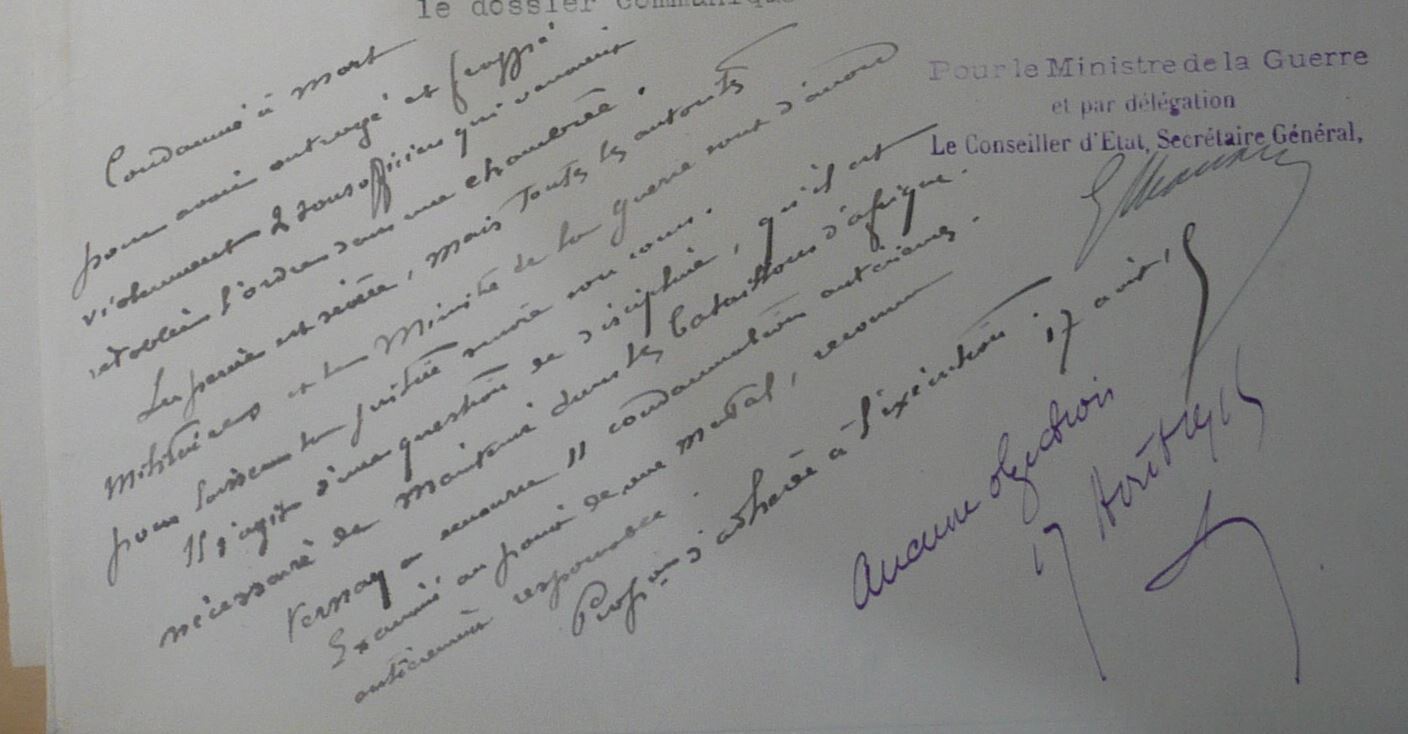 le dossier communiqué
Condamné à mort
pour avoir outragé et frappé
violemment 2 sous officiers qui venaient
rétablir l'ordre dans une chambrée.
La peine est sévère, mais toutes les autorités
militaires et le Ministre de la guerre sont d'avis
pour laisser la justice suivre son cours.
Il s'agit d'une question de discipline, qu'il est
nécessaire de maintenir dans les bataillons d'afrique.
Vernay a encouru 11 condamnations antérieures.
Examiné au point de vue mental, reconnu
entièrement responsable.
Propon d'adhérer à l'exécution. 17 août,
Pour le Ministre de la Guerre
et par délégation
Le Conseiller d'Etat, Secrétaire Général,
Aucune objection
17 Août 1915